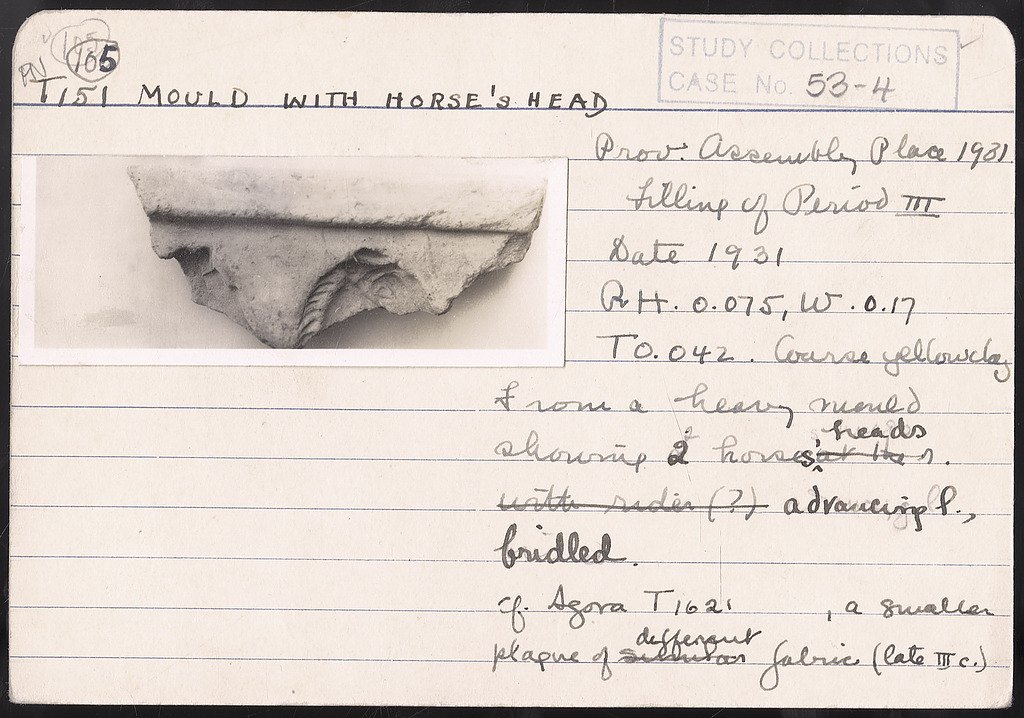 PN 105
105
STUDY COLLECTIONS
CASE No. 53-4
T151 MOULD WITH HORSE'S HEAD
Prov. Assembly Place 1931
Filling of Period III
Date 1931
P.H. 0.075, W. 0.17
T 0.042. Coarse yellow clay
From a heavy mould
showing 2 horses' heads at the r.
with rider (?) advancing l.,
bridled.
cf. Agora T 1621, a smaller
plaque of different fabric (late III c.)